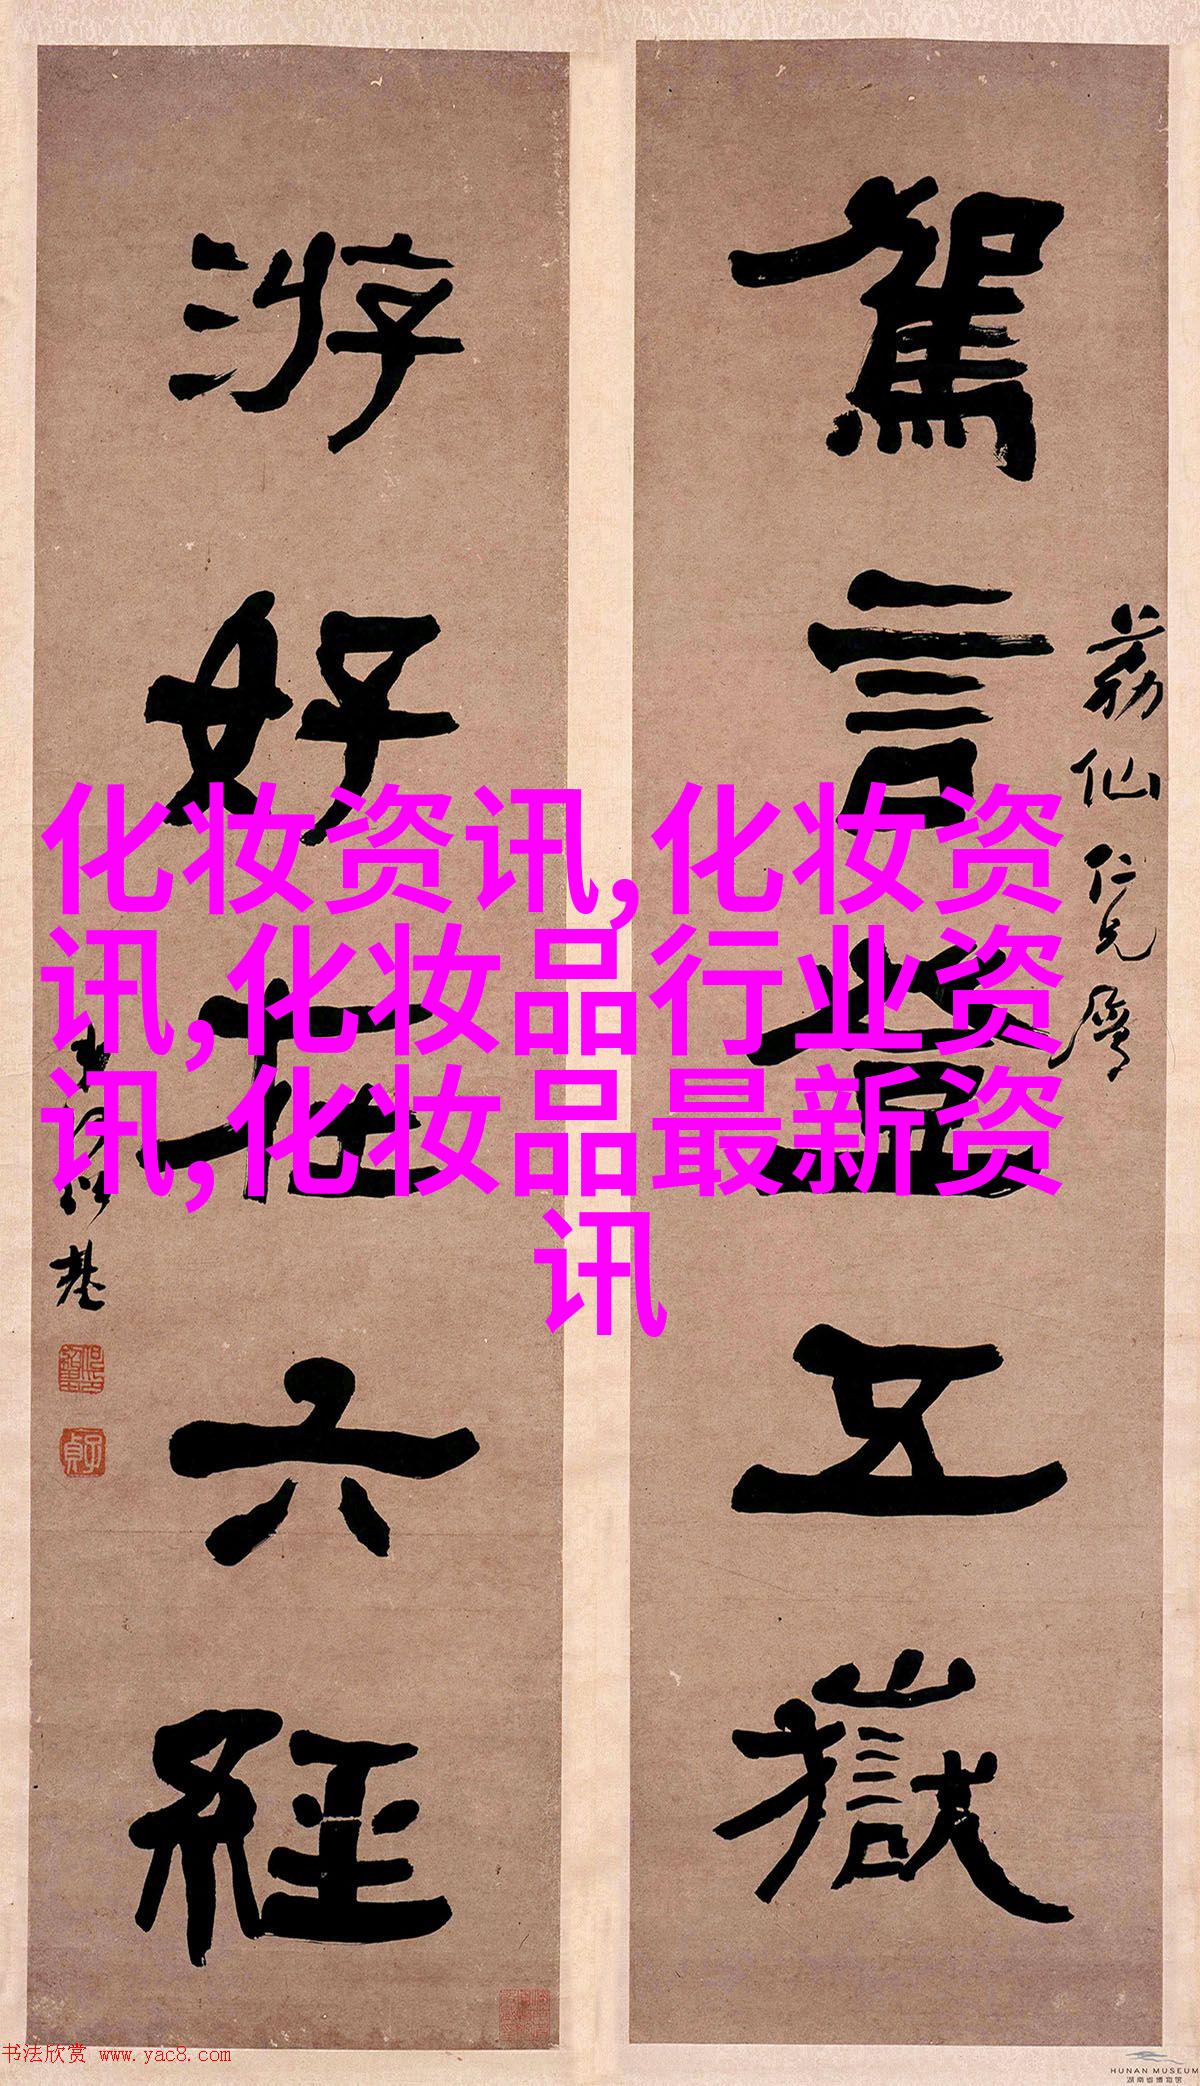 駕言登五嶽
荔仙仁兄属
游好在六經
子貞
化妆资讯,化妆资
讯,化妆品行业资
讯,化妆品最新资
讯
书法欣赏 www.yac8.com
HUNAN MUSEUM
湖南省博物馆